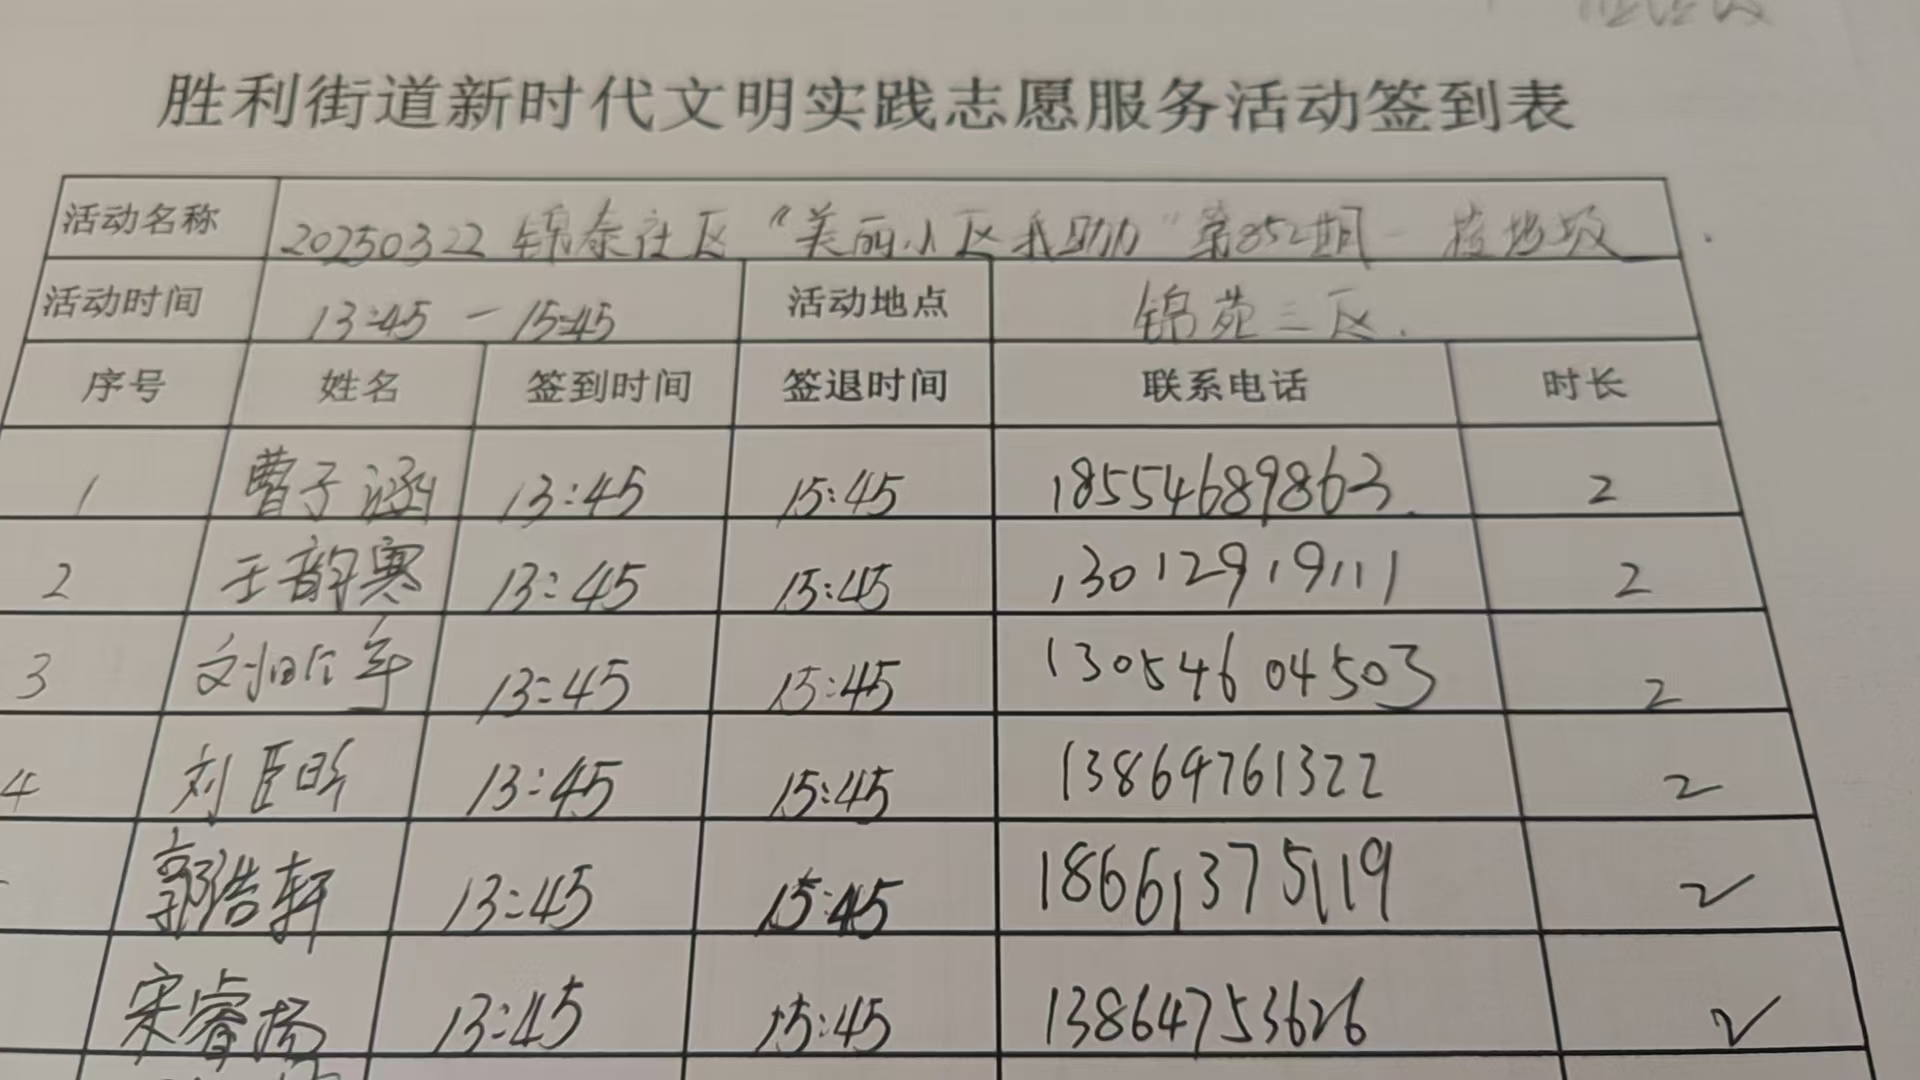 胜利街道新时代文明实践志愿服务活动签到表
活动名称 20250322 锦泰社区“美丽小区我助力”第852期－捡垃圾
活动时间 13:45 － 15:45 活动地点 锦苑三区.
序号 姓名 签到时间 签退时间 联系电话 时长
1 曹子涵 13:45 15:45 18554689863 2
2 王韵寒 13:45 15:45 13012919111 2
3 13:45 15:45 13054604503 2
4 刘臣昕 13:45 15:45 13864761322 2
郭浩轩 13:45 15:45 18661375119 2
宋睿扬 13:45 15:45 13864753626 2